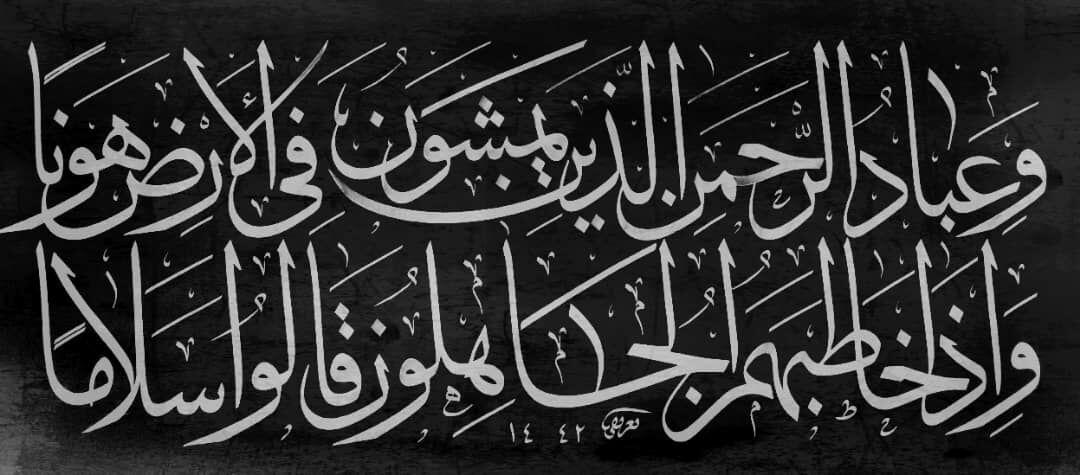 وَعِبَادُ الرَّحْمَنِ الَّذِينَ يَمْشُونَ فِي الْأَرْضِ هَوْنًا
وَإِذَا خَاطَبَهُمُ الْجَاهِلُونَ قَالُوا سَلَامًا
١٤٤٢